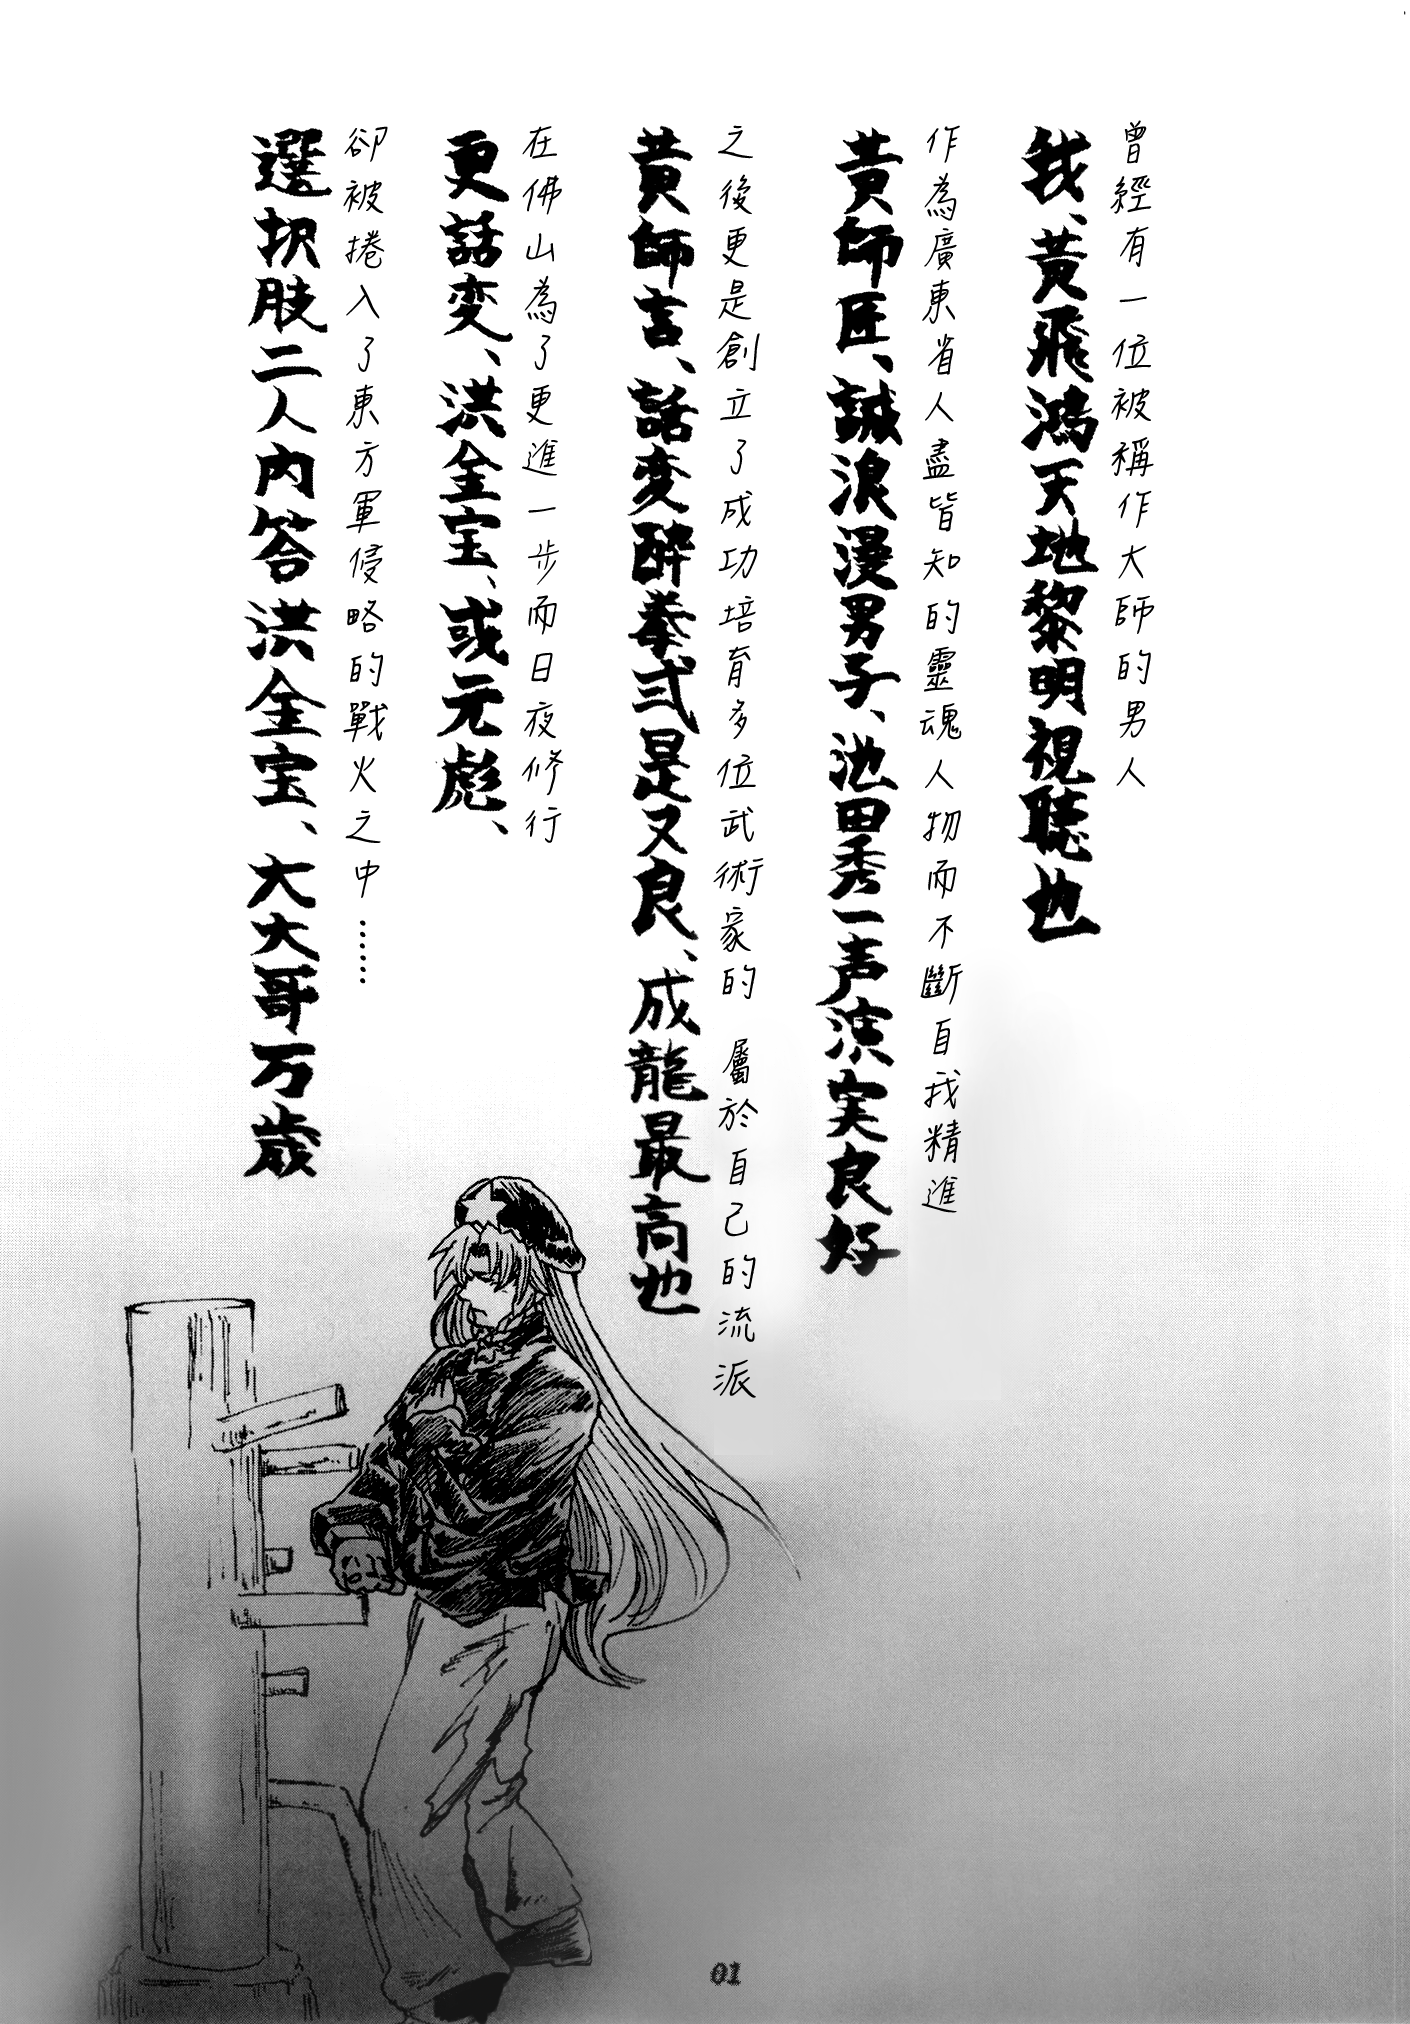 曾經有一位被稱作大師的男人
我、黃飛鴻天地黎明視聴也
作為廣東省人盡皆知的靈魂人物而不斷自我精進
黄師匠、誠浪漫男子、池田秀一声演実良好
之後更是創立了成功培育多位武術家的 屬於自己的流派
黄師言、話変酔拳弐是又良、成龍最高也
在佛山為了更進一步而日夜修行
更話変、洪金宝、或元彪、
卻被捲入了東方軍侵略的戰火之中……
選択肢二人内答洪金宝、大大哥万歳
01